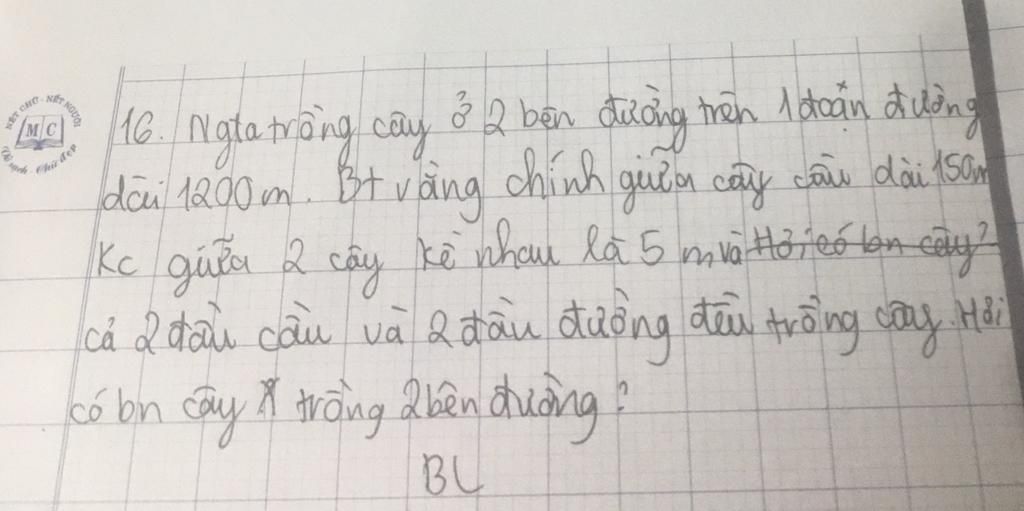 NÉT CHỮ - NẾT NGƯỜI
MC
16. Ngta trồng cây ở 2 bên đường trên 1 đoạn đường
dài 1200m. Bt vàng chính giữa cây cầu dài 150m
Kc giữa 2 cây kề nhau là 5 m và Hỏi có bn cây?
cả 2 đầu cầu và 2 đầu đường đều trồng cây. Hỏi
có bn cây trồng 2 bên đường?
BL